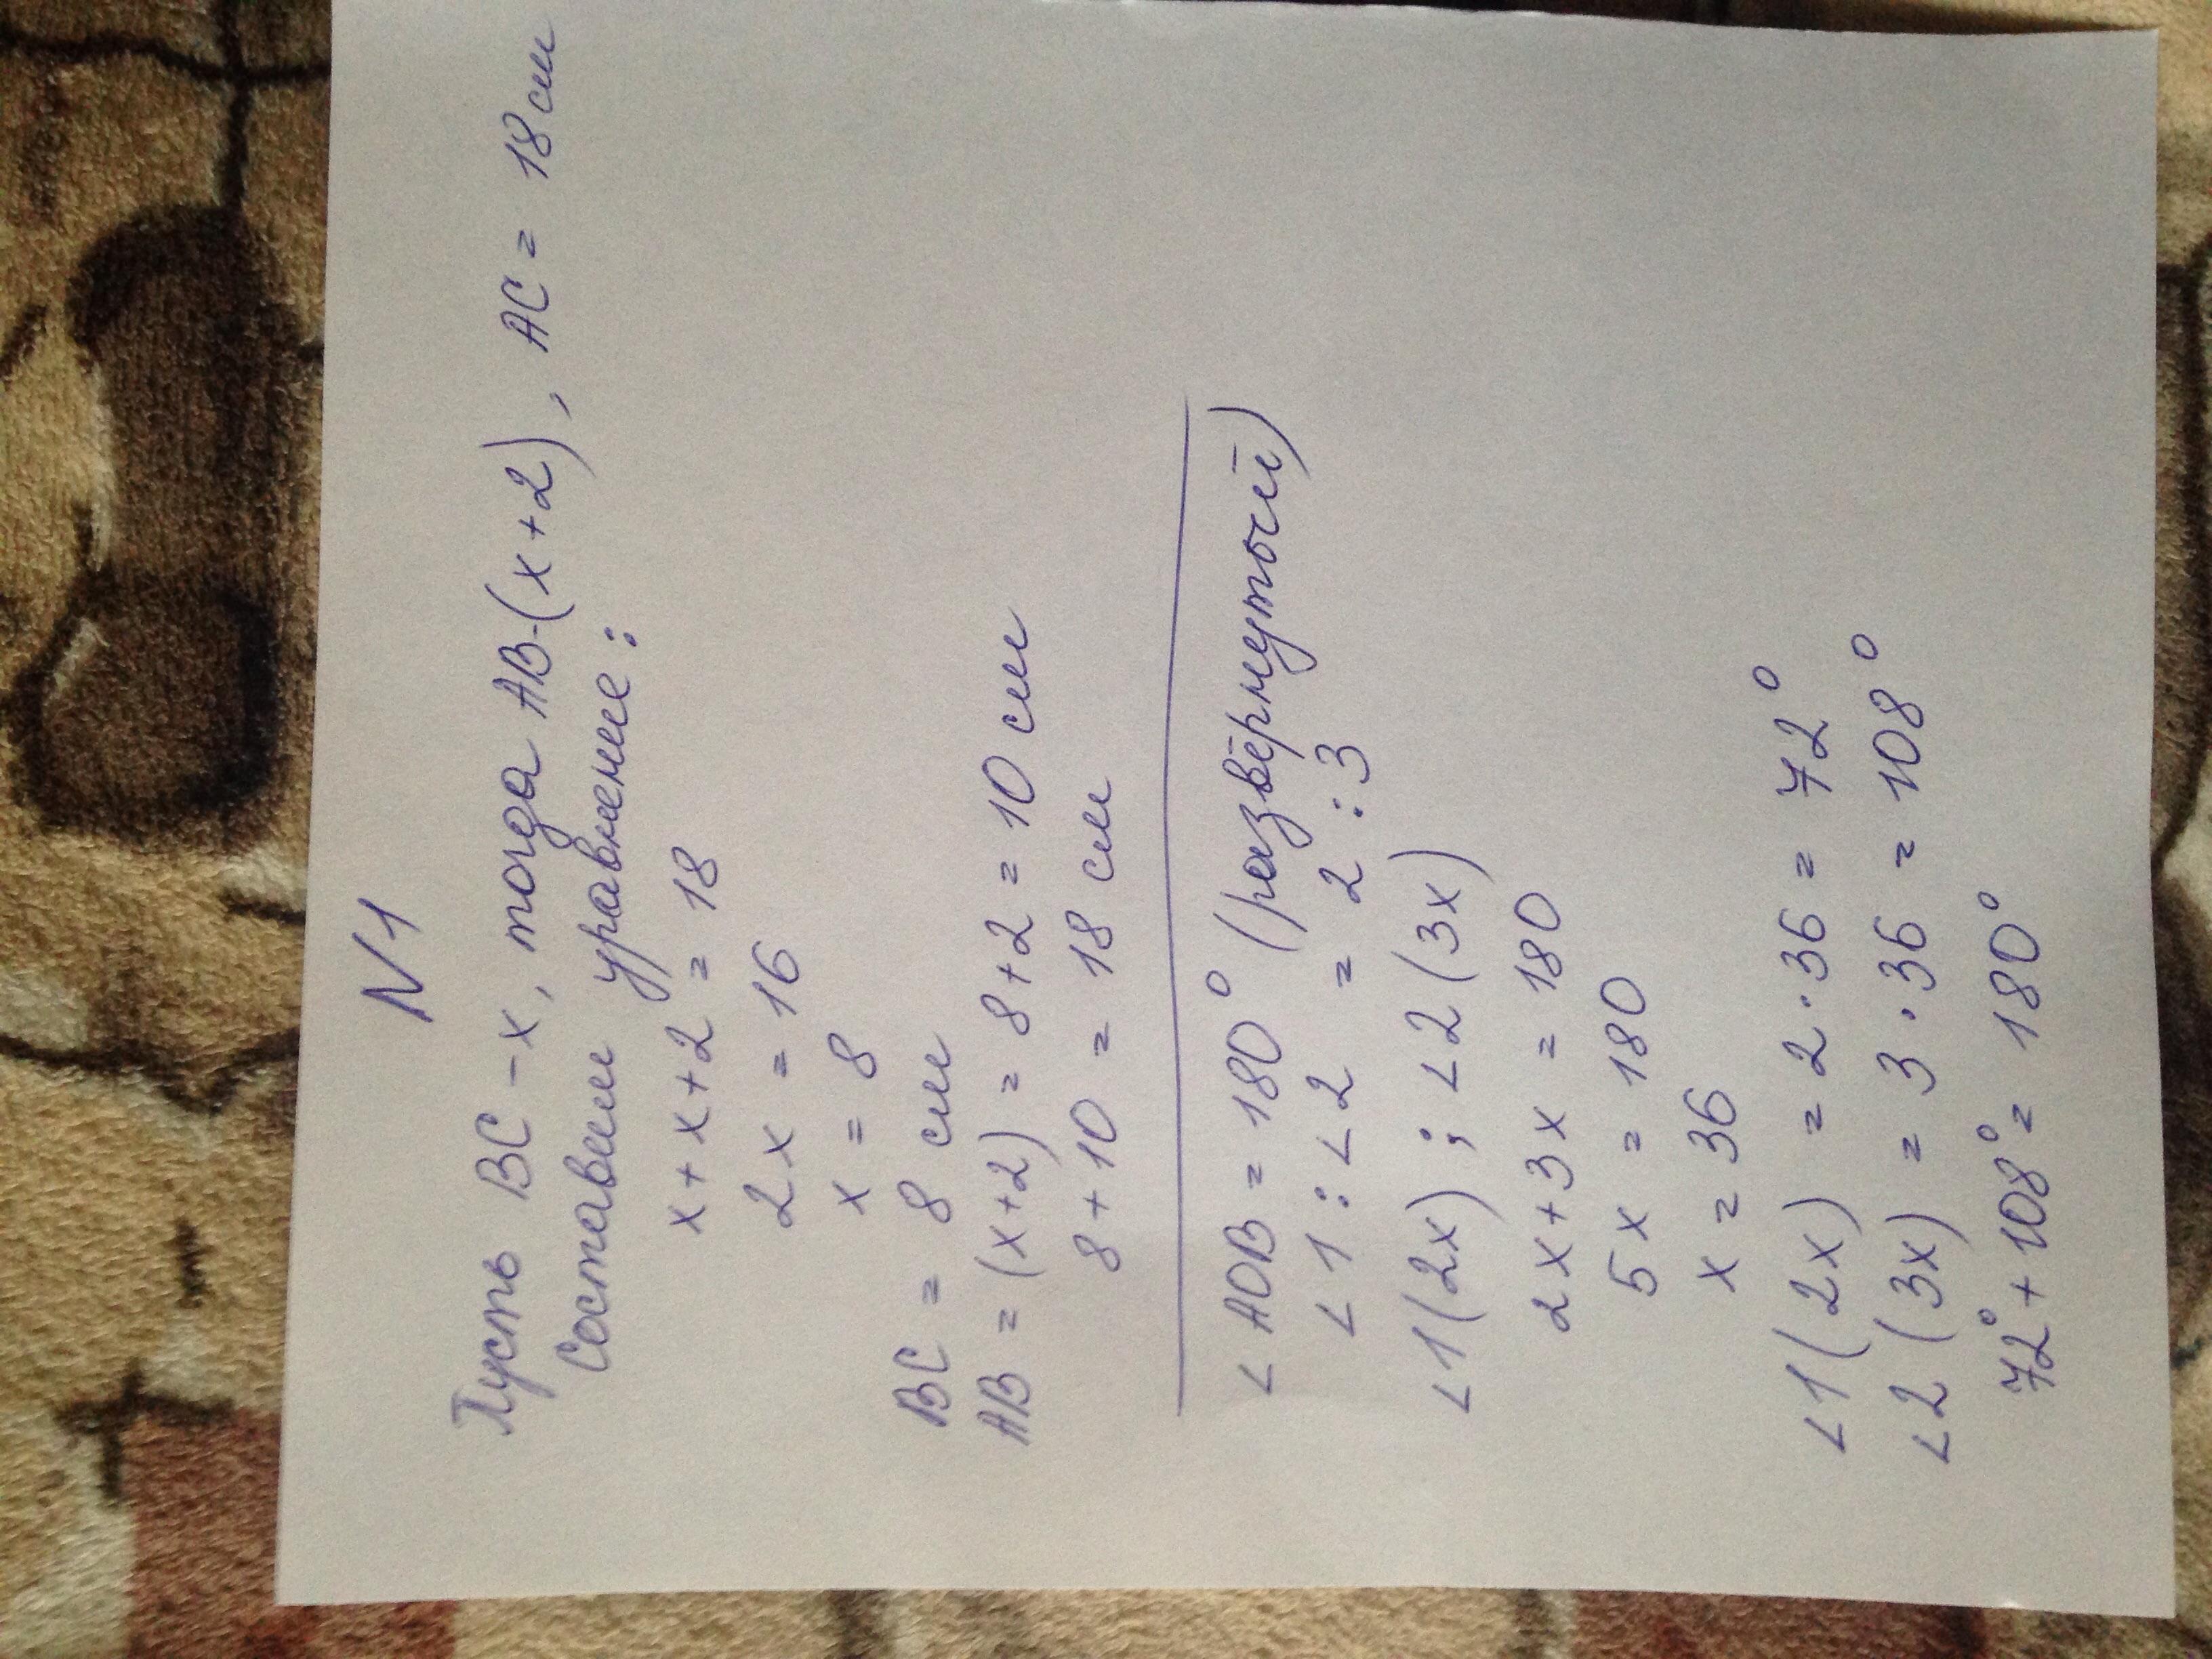 N1
Пусть BC - x, тогда AB-(x+2), AC = 18 см
Составим уравнение:
x+x+2 = 18
2x = 16
x = 8
BC = 8 см
AB = (x+2) = 8+2 = 10 см
8+10 = 18 см
∠AOB = 180° (развёрнутый)
∠1 : ∠2 = 2 : 3
∠1(2x) ; ∠2(3x)
2x+3x = 180
5x = 180
x = 36
∠1(2x) = 2·36 = 72°
∠2(3x) = 3·36 = 108°
72°+108° = 180°